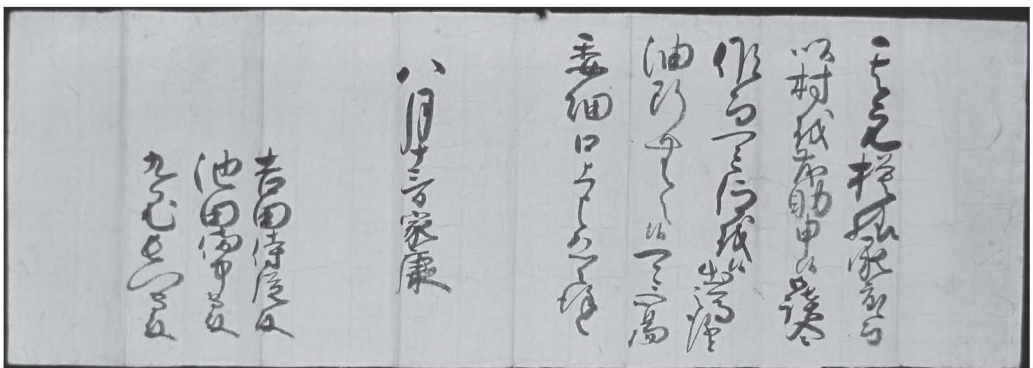 其元模様
以村越茂助申候御談合
候而可被仰越候出馬之儀
油断無之候可
委細口上申候恐々謹言
八月十三日家康
吉田侍従殿
池田備中守殿
九鬼長門守殿